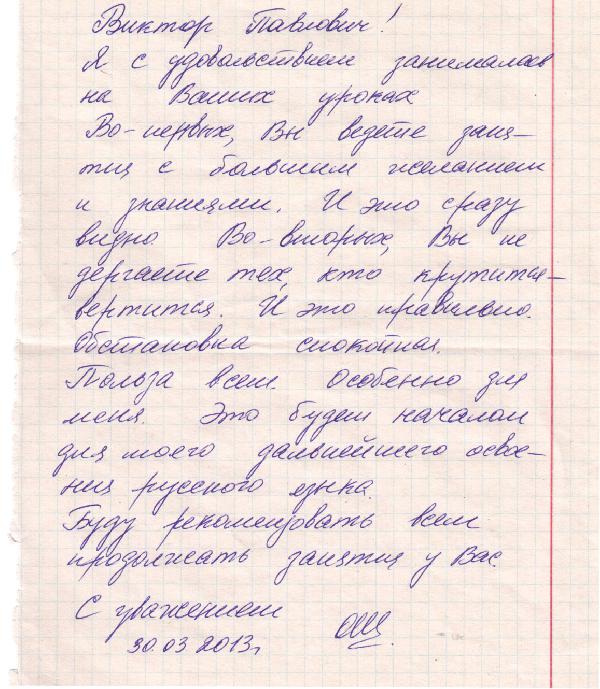 Виктор Павлович!
Я с удовольствием занималась
на Ваших уроках
Во-первых, Вы ведете заня-
тия с большим желанием
и знаниями. И это сразу
видно. Во-вторых, Вы не
дергаете тех, кто крутится-
вертится. И это правильно.
Обстановка спокойная.
Польза всем. Особенно для
меня. Это будет началом
для моего дальнейшего освое-
ния русского языка.
Буду рекомендовать всем
продолжать занятия у Вас.
С уважением
30.03 2013г